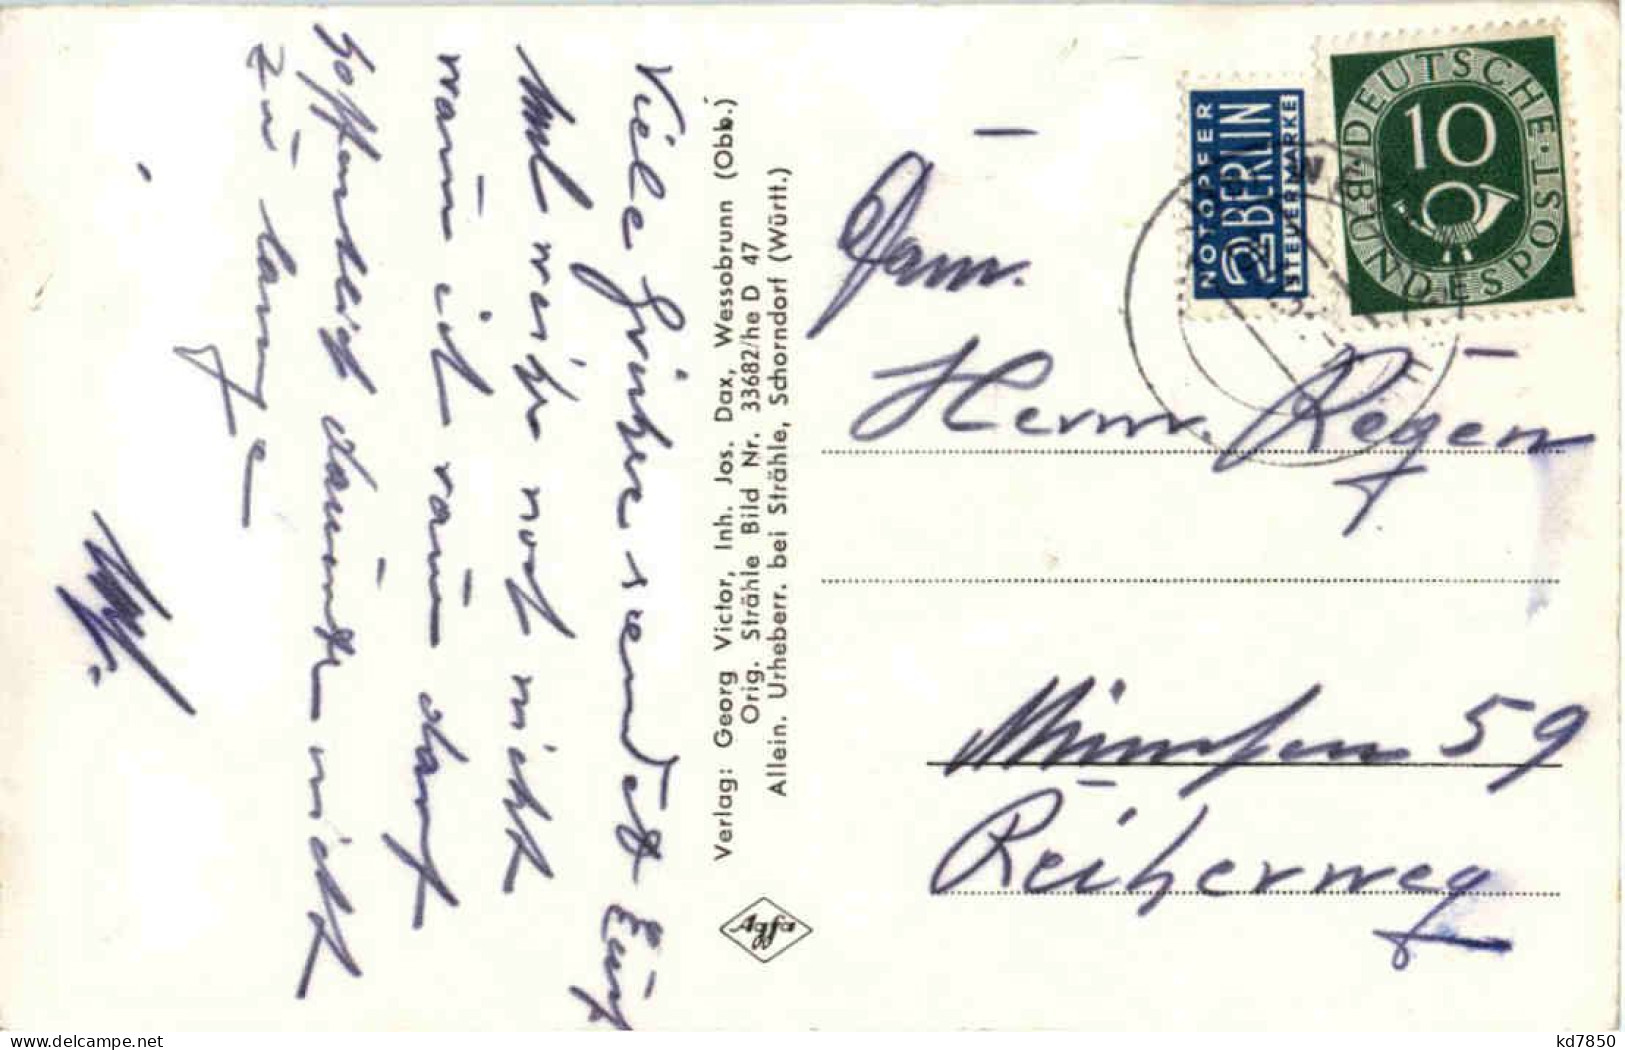 Viele Grüße sendet Euch
und weiter noch nicht
warum ich
hoffentlich dauert er nicht
zu lange
Verlag: Georg Victor, Inh. Jos. Dax, Wessobrunn (Obb.)
Orig. Strähle Bild Nr. 33682/he D 47
Allein. Urheberr. bei Strähle, Schorndorf (Württ.)
Agfa
NOTOPFER
2 BERLIN
STEUERMARKE
DEUTSCHE · BUNDESPOST
10
Fam.
Herrn.
München 59
Reiherweg 7
kd7850